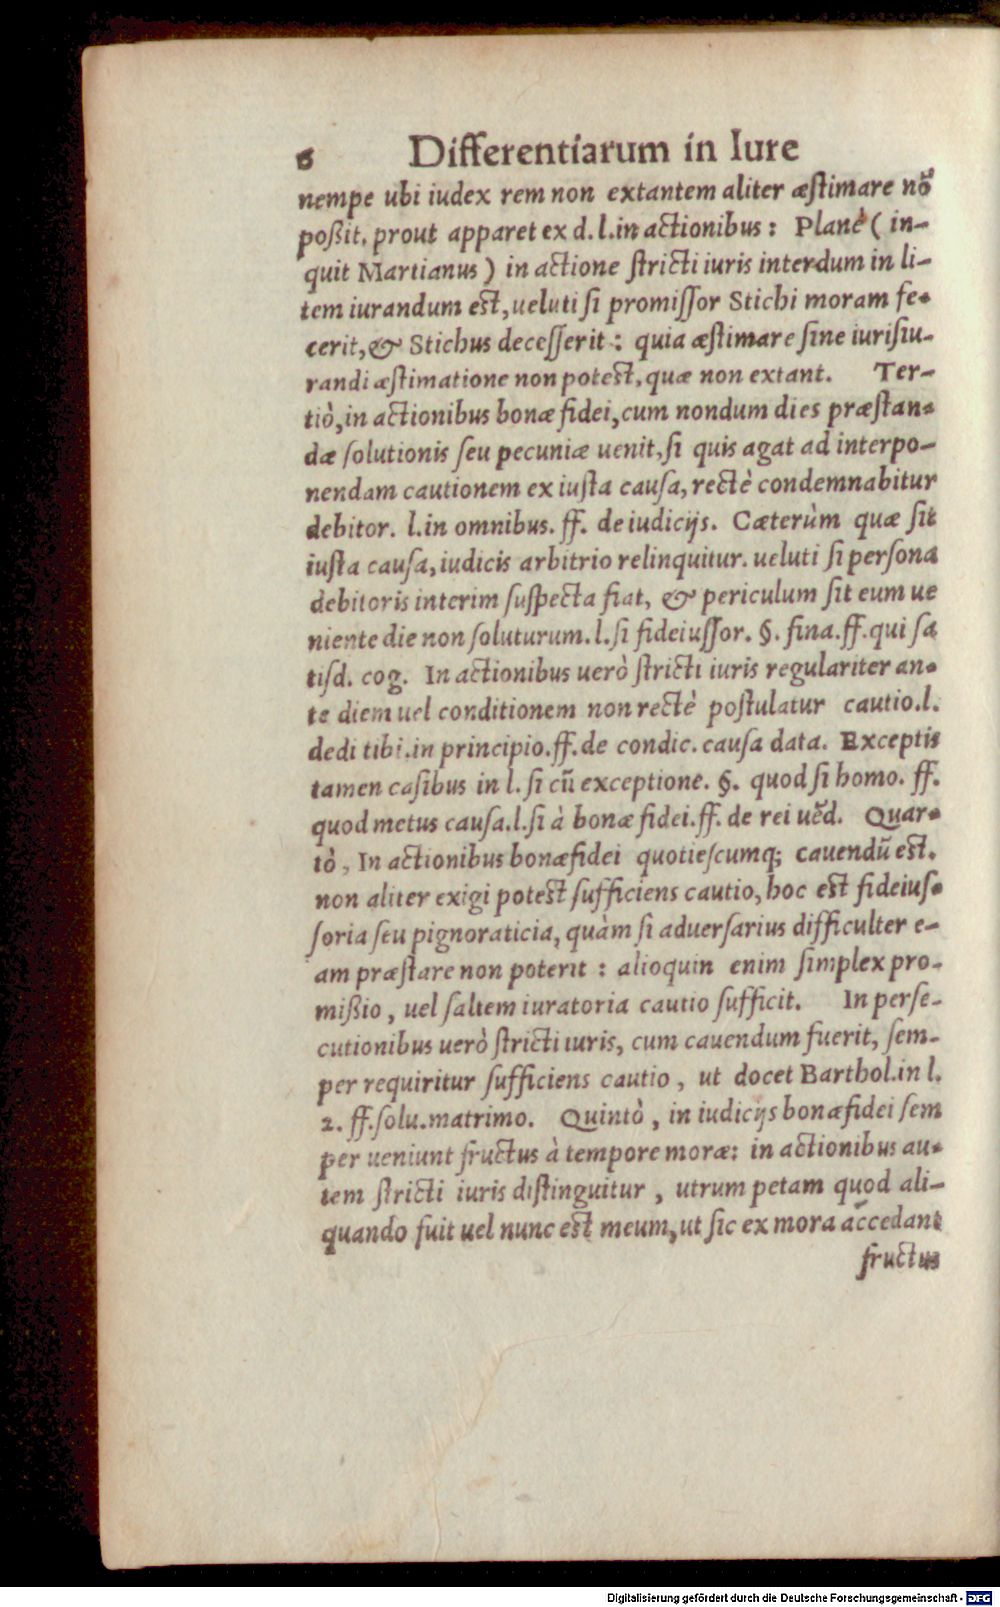 6 Differentiarum in Iure
nempe ubi iudex rem non extantem aliter æstimare nõ
poßit, prout apparet ex d. l. in actionibus: Planè ( in-
quit Martianus ) in actione stricti iuris interdum in li-
tem iurandum est, ueluti si promissor Stichi moram fe-
cerit, & Stichus decesserit : quia æstimare sine iurisiu-
randi æstimatione non potest, quæ non extant. Ter-
tiò, in actionibus bonæ fidei, cum nondum dies præstan-
dæ solutionis seu pecuniæ uenit, si quis agat ad interpo-
nendam cautionem ex iusta causa, rectè condemnabitur
debitor. l. in omnibus. ff. de iudicijs. Cæterùm quæ sit
iusta causa, iudicis arbitrio relinquitur. ueluti si persona
debitoris interim suspecta fiat, & periculum sit eum ue
niente die non soluturum. l. si fideiussor. §. fina. ff. qui sa
tisd. cog. In actionibus uerò stricti iuris regulariter an-
te diem uel conditionem non rectè postulatur cautio. l.
dedi tibi. in principio. ff. de condic. causa data. Exceptis
tamen casibus in l. si cũ exceptione. §. quod si homo. ff.
quod metus causa. l. si à bonæ fidei. ff. de rei uẽd. Quar-
tò, In actionibus bonæfidei quotiescumq; cauendũ est.
non aliter exigi potest sufficiens cautio, hoc est fideius-
soria seu pignoraticia, quàm si aduersarius difficulter e-
am præstare non poterit : alioquin enim simplex pro-
mißio, uel saltem iuratoria cautio sufficit. In perse-
cutionibus uerò stricti iuris, cum cauendum fuerit, sem-
per requiritur sufficiens cautio, ut docet Barthol. in l.
2. ff. solu. matrimo. Quintò, in iudicijs bonæfidei sem
per ueniunt fructus à tempore moræ: in actionibus au-
tem stricti iuris distinguitur, utrum petam quod ali-
quando fuit uel nunc est meum, ut sic ex mora accedant
fructus
Digitalisierung gefördert durch die Deutsche Forschungsgemeinschaft - DFG